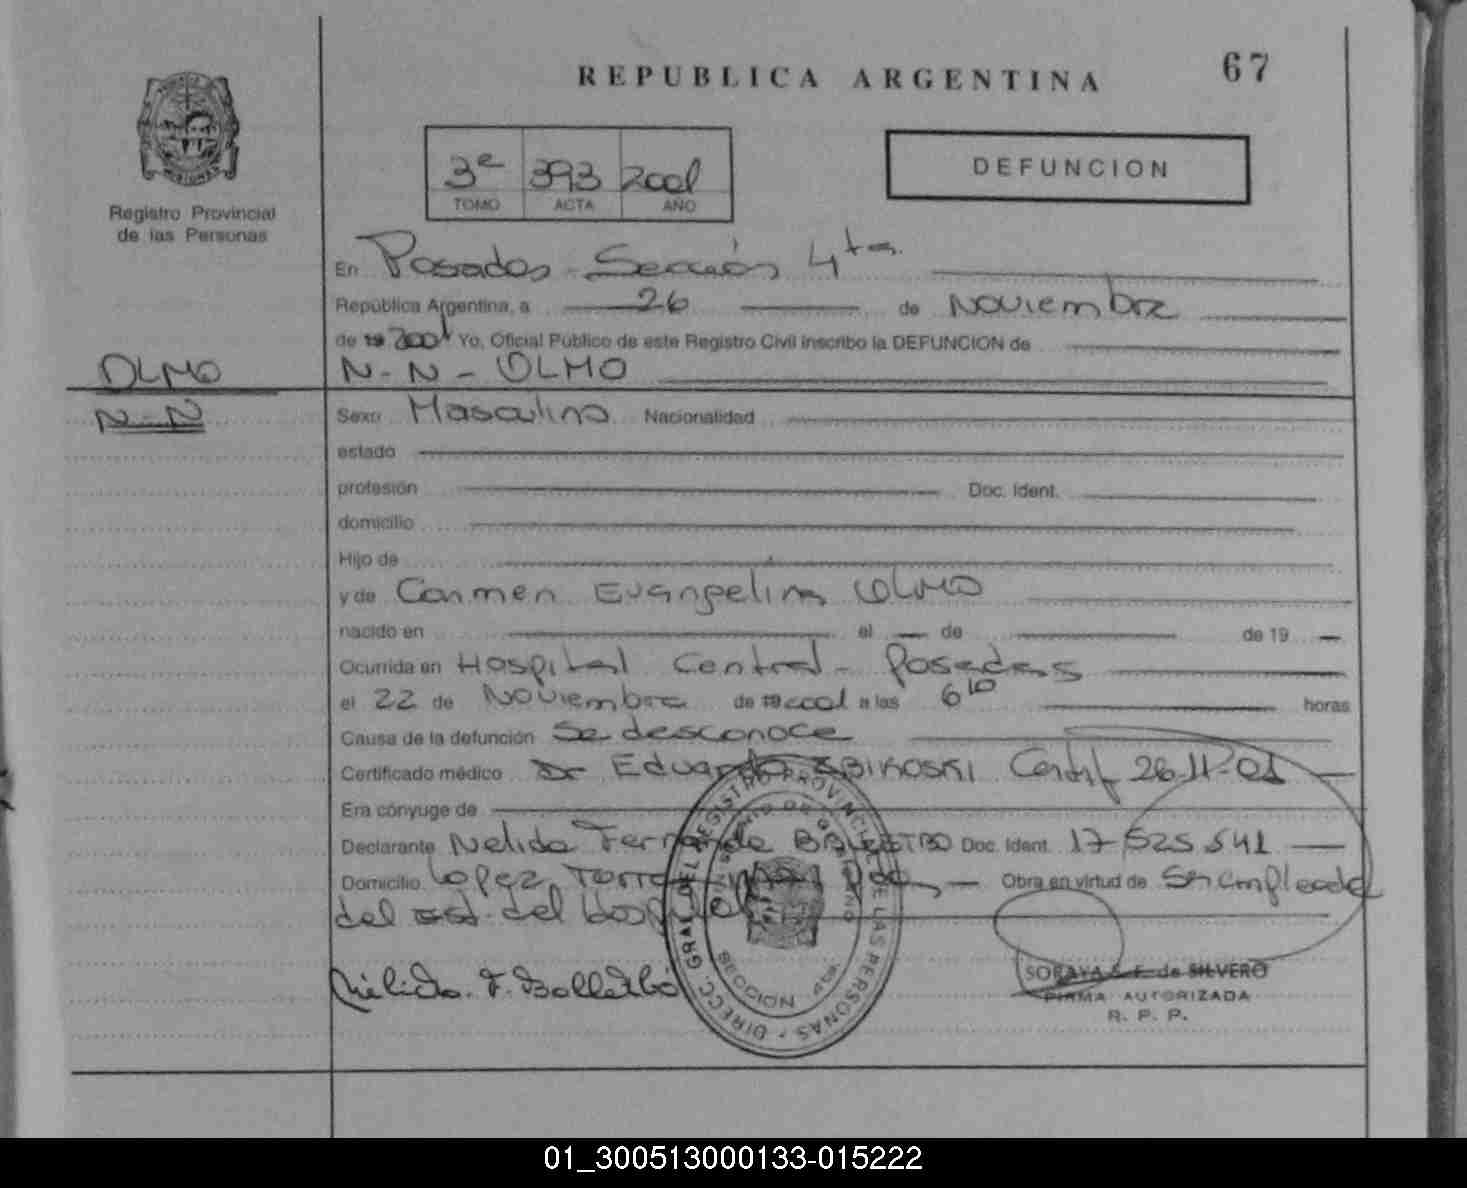 REPUBLICA ARGENTINA
67
MISIONES
Registro Provincial
de las Personas
3e 393 2001
TOMO ACTA AÑO
DEFUNCION
En Posadas - Sección 4ta.
República Argentina, a 26 de Noviembre
de 19 2001 Yo, Oficial Público de este Registro Civil inscribo la DEFUNCION de
OLMO
N-N
N-N - OLMO
Sexo Masculino Nacionalidad
estado
profesión Doc. Ident.
domicilio
Hijo de
y de Carmen Evangelina OLMO
nacido en el de de 19
Ocurrida en Hospital Central - Posadas
el 22 de Noviembre de 19 2001 a las 6 10 horas
Causa de la defunción Se desconoce
Certificado médico Dr Eduardo ZBIKOSKI Certif 26-11-01
Era cónyuge de
Declarante Nelida Fernanda Doc. Ident. 17 525 541
Domicilio Lopez Torres Obra en virtud de Ser empleada
del est. del Hospital
Nélida. F.
DIRECC. GRAL. DEL REGISTRO PROVINCIAL DE LAS PERSONAS
MINISTERIO DE GOBIERNO
SECCION 4ta.
SORAYA S. F. de SILVERO
FIRMA AUTORIZADA
R. P. P.
01_300513000133-015222